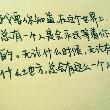 我要你知道,在这个世界上
总有一个人是会永远等着你
的。无论什么时候,无论在
什么地方,总会有这么一个人